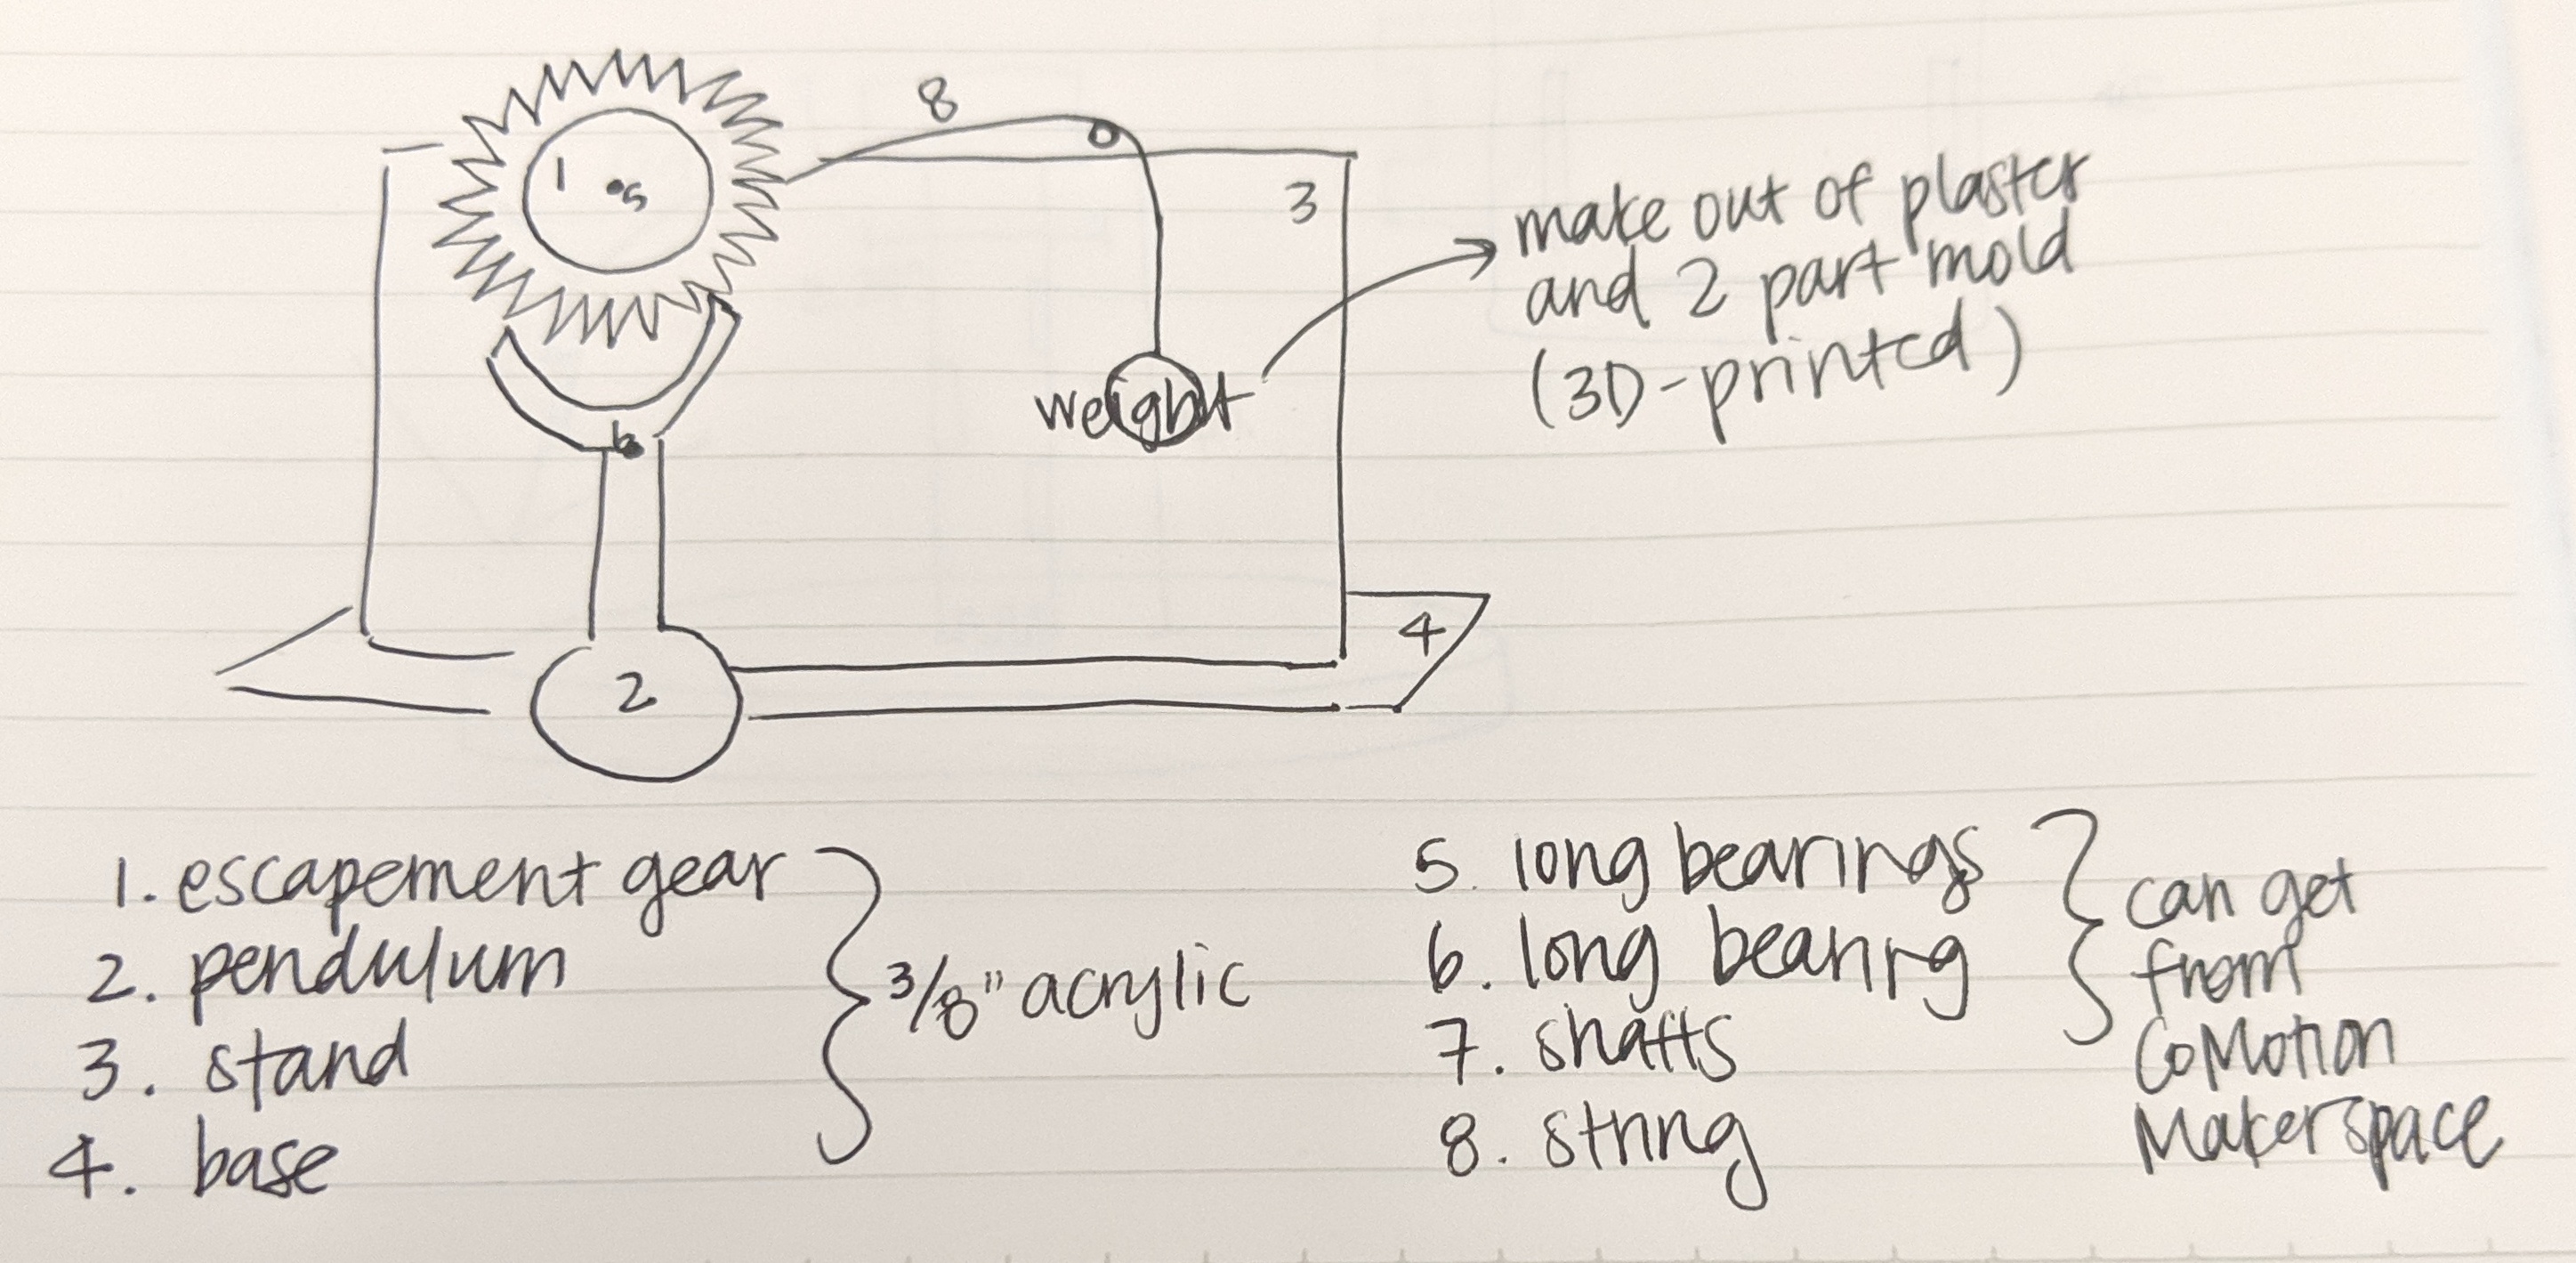 8
1 5
3
make out of plaster
and 2 part mold
(3D-printed)
weight
6
4
2
1. escapement gear
2. pendulum
3. stand
4. base
3/8" acrylic
5. long bearings
6. long bearing
7. shafts
8. string
can get
from
CoMotion
Makerspace